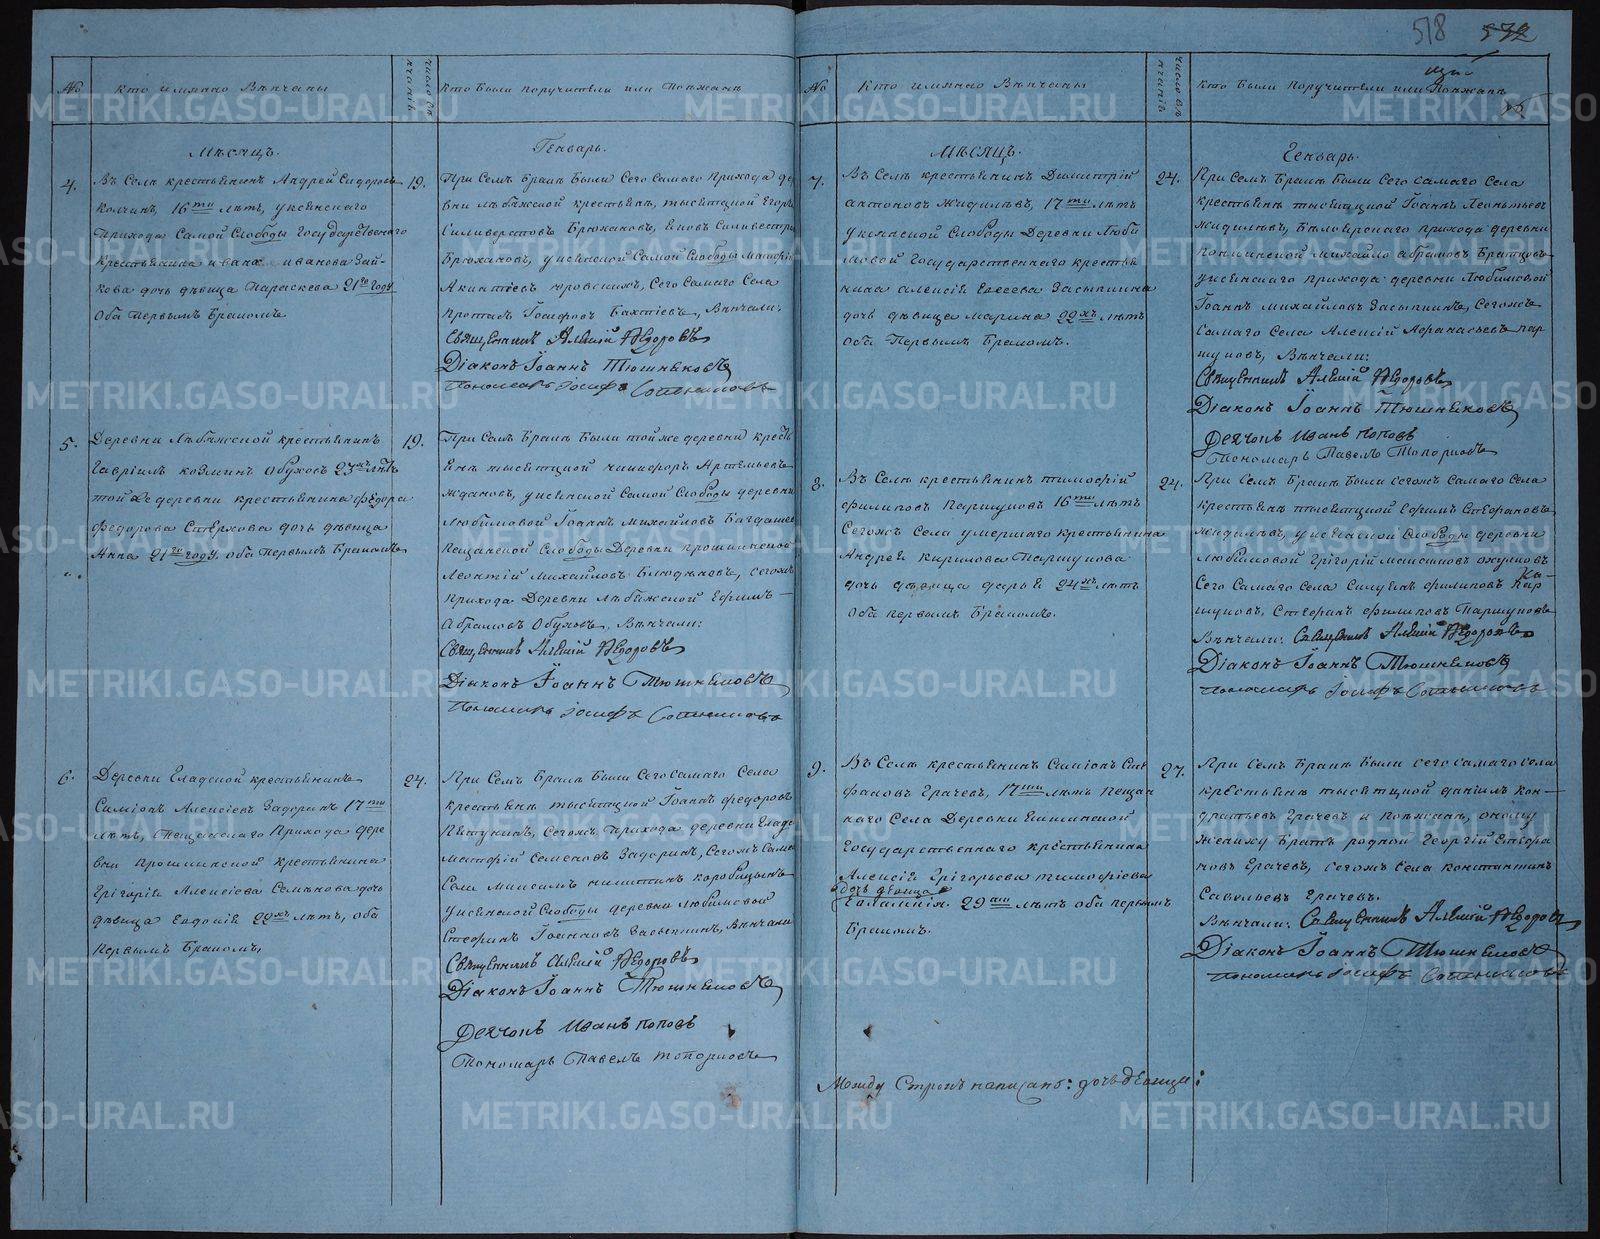 518 532
№ Кто имянно Вѣнчаны Число вѣнчанiѣ Кто были поручители или Поѣжанѣ
Мѣсяцъ. Генварь.
4. Въ Селѣ крестьянинъ Андрей Сидоровъ
Колчинъ, 16ти лѣтъ, уксянскаго
Прихода Самой Слободы Государственнаго
крестьянина ивана иванова Зай-
кова дочь дѣвица Параскева 21го году
оба первымъ бракомъ
19.
При Семъ Бракѣ Были Сего Самаго Прихода де
вни лѣбяжской крестьянѣ, тысяцкой Егоръ
Силиверстовъ Брюхановъ,
Брюхановъ, уксянской Самой Слободы
Акинтiевъ юровскихъ, Сего Самаго Села
Iосифовъ Бахтiевъ, Вѣнчали:
Священникъ Алексiй Ѳедоровъ
Дiаконъ Iоаннъ Тюшняковъ
Пономарь Iосифъ Сотниковъ
5. Деревни Лѣбяжской крестьянинъ
Гаврiилъ козминъ Обуховъ 23хъ лѣтъ
той же деревни крестьянина федора
федорова Стерхова дочь дѣвица
Анна 21го году, оба первымъ Бракомъ
19.
При Семъ Бракѣ Были той же деревни крестья
Янѣ тысяцкой никифоръ Артемьевъ
Ждановъ, уксянской Самой Слободы деревни
Любимовой Iоаннъ Михайловъ
Пещанской Слободы Деревни прошкинской
Леонтiй Михайловъ Блюдѣновъ, сегожъ
прихода Деревни лѣбяжской Ефимъ
Абрамовъ Обуховъ, Вѣнчали:
Священникъ Алексiй Ѳедоровъ
Дiаконъ Iоаннъ Тюшняковъ
Пономарь Iосифъ Сотниковъ
6. Деревни Гладской крестьянинъ
Симiонъ Алексiевъ Задоринъ 17ти
лѣтъ, Пещанскаго Прихода дере
вни прошкинской крестьянина
Григорiя Алексiева Семѣнова дочь
дѣвица Евдокiя 22хъ лѣтъ, оба
первымъ Бракомъ,
24.
При Семъ Бракѣ Были Сего Самаго Села
крестьянѣ тысяцкой Iоаннъ федоровъ
Пѣтухинъ, Сегожъ прихода деревни Гладс
Семеновъ Задоринъ, Сегожъ Сама
Села Максимъ никитинъ коробицынъ
уксянской Слободы деревни любимовой
Стефанъ Iоанновъ Засыпкинъ, Вѣнчали
Священникъ Алексiй Ѳедоровъ
Дiаконъ Iоаннъ Тюшняковъ
Дьячокъ Иванъ Поповъ
Пономарь Павелъ топорковъ
№ Кто имянно Вѣнчаны Число вѣнчанiѣ Кто были поручители или Поѣжанѣ
Мѣсяцъ. Генварь.
7. Въ Селѣ крестьянинъ Димитрiй
антоновъ Жидилевъ, 17ти лѣтъ
уксянской Слободы Деревни Люби
мовой Государственнаго крестья
нина алексiя Евсеева Засыпкина
дочь дѣвица марина 22хъ лѣтъ
оба Первымъ Бракомъ.
24.
При Семъ Бракѣ Были Сего Самаго Села
крестьянѣ тысяцкой Iоаннъ Леонтьевъ
Жидилевъ, Бѣлоярскаго прихода деревни
Михайло Абрамовъ Братцовъ
уксянскаго прихода деревни Любимовой
Iоаннъ михайловъ Засыпкинъ, Сегожъ
Самаго Села Алексiй Афанасьевъ пар
шуковъ, Вѣнчали:
Священникъ Алексiй Ѳедоровъ
Дiаконъ Iоаннъ Тюшняковъ
Дьячокъ Иванъ Поповъ
Пономарь Павелъ Топорковъ
8. Въ Селѣ крестьянинъ тимофiй
филиповъ Паршуковъ 16ти лѣтъ
Сегожъ Села умершаго крестьянина
Андрея Кирилова Паршукова
дочь дѣвица дарья 24хъ лѣтъ
Оба первымъ Бракомъ.
24.
При Семъ Бракѣ Были сегожъ Самаго Села
крестьянѣ тысяцкой Ефимъ Стефановъ
жидилевъ, уксянской Слободы деревни
Любимовой Григорiй
Сего Самаго Села филиповъ Пар
шуковъ, Стефанъ филиповъ Паршуковъ
Вѣнчали: Священникъ Алексiй Ѳедоровъ
Дiаконъ Iоаннъ Тюшняковъ
Пономарь Iосифъ Сотниковъ
9. Въ Селѣ крестьянинъ Симiонъ Сте
фановъ Грачевъ, 17ти лѣтъ Пещан
скаго Села Деревни
Государственнаго крестьянина
Алексiя Григорьева тимофiева
дочь дѣвица
29ти лѣтъ оба первымъ
Бракомъ.
27.
При Семъ Бракѣ Были сего самаго села
крестьянѣ тысяцкой данiилъ кон-
дратьевъ Грачевъ и поѣжанѣ, оному
Жениху Братъ родной Георгiй Стефа
новъ Грачевъ, сегожъ села константинъ
Савельевъ Грачевъ.
Вѣнчали: Священникъ Алексiй Ѳедоровъ
Дiаконъ Iоаннъ Тюшняковъ
Пономарь Iосифъ Сотниковъ
Между Строкъ написано: дочь дѣвица:
METRIKI.GASO-URAL.RU